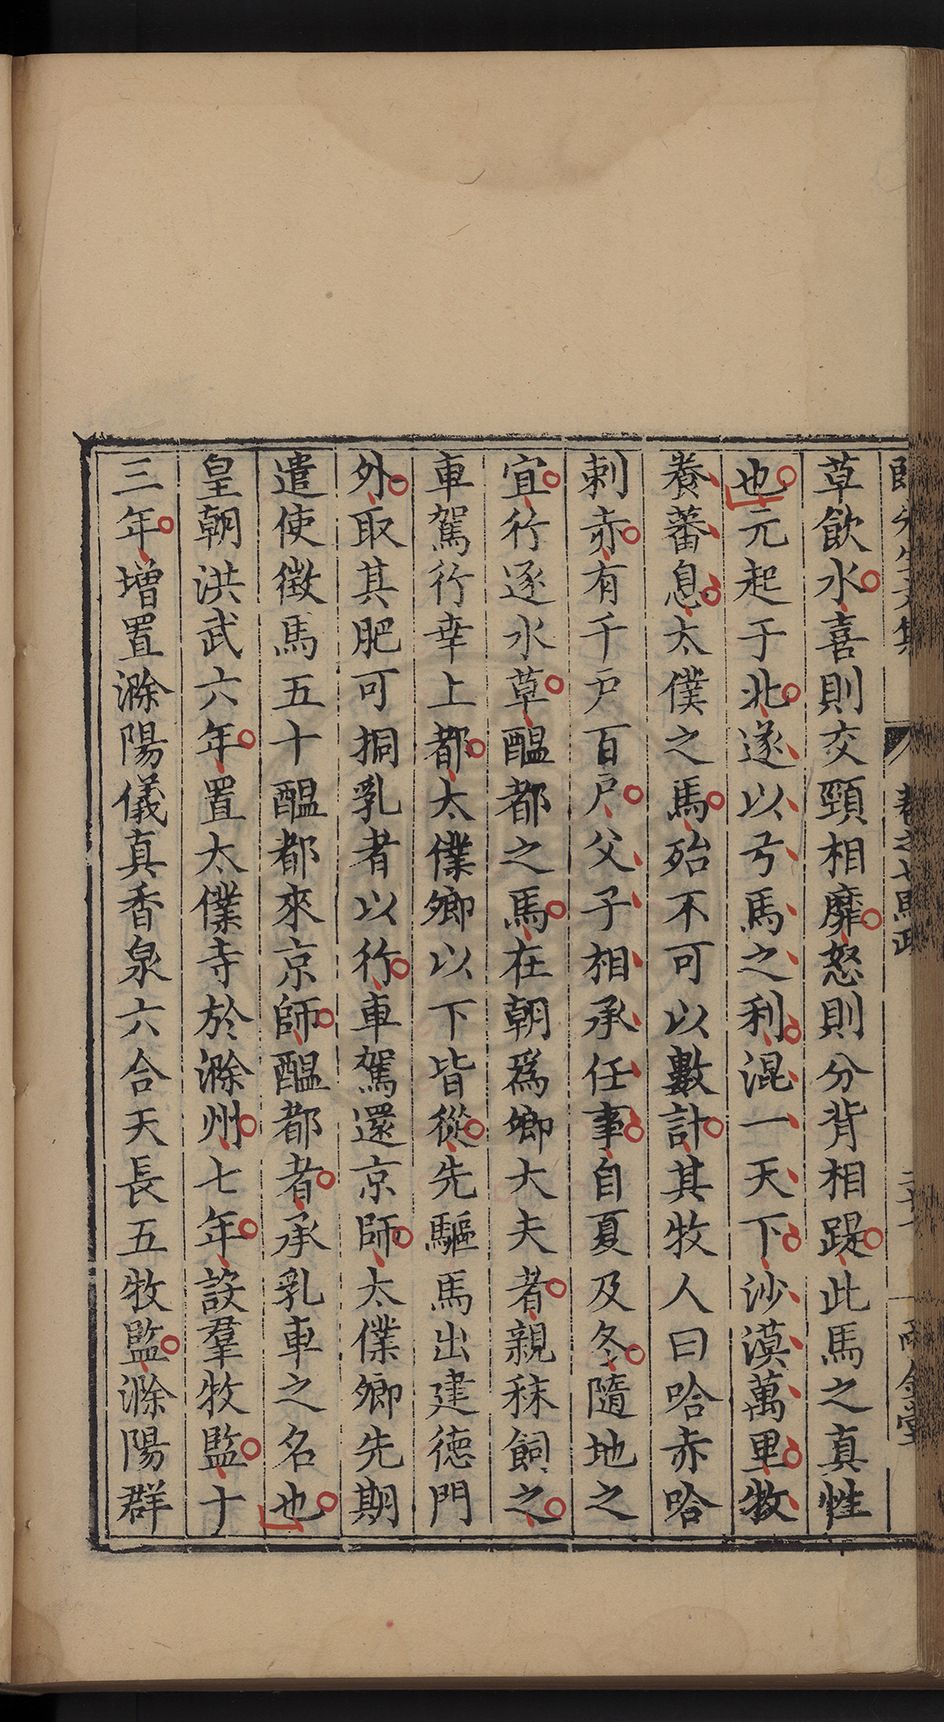 卷之七馬政
草飲水喜則交頸相靡怒則分背相踶此馬之真性
也元起于北遂以弓馬之利混一天下沙漠萬里牧
養蕃息太僕之馬殆不可以數計其牧人曰哈赤哈
剌赤有千戶百戶父子相承任事自夏及冬隨地之
宜行逐水草醞都之馬在朝爲卿大夫者親秣飼之
車駕行幸上都太僕卿以下皆從先驅馬出建德門
外取其肥可挏乳者以行車駕還京師太僕卿先期
遣使徵馬五十醞都來京師醞都者承乳車之名也
皇朝洪武六年置太僕寺於滁州七年設羣牧監十
三年增置滁陽儀真香泉六合天長五牧監滁陽群